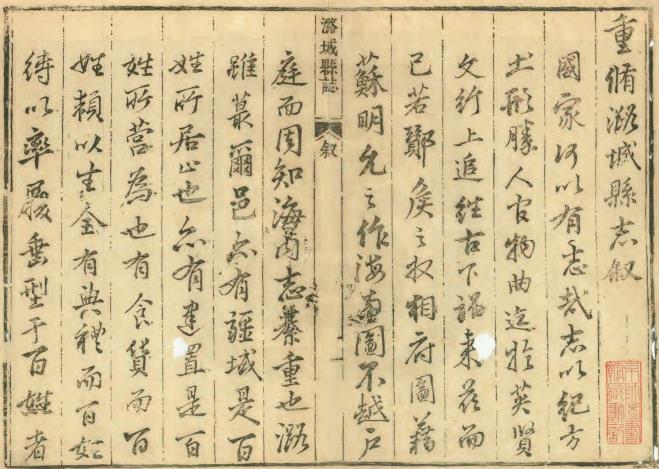 重脩潞城縣志叙
國家何以有志哉志以紀方
土形勝人官物曲迄於英賢
文行上追往古下詔来茲而
已若酇侯之收相府圖籍
蘇明允之作海圖不越戶
潞城縣誌
叙
庭而周知海內志綦重也潞
雖蕞爾邑亦有疆域是百
姓所居止也亦有建置是百
姓所營為也有食貨而百
姓頼以生全有典禮而百姓
待以率履垂型于百姓者